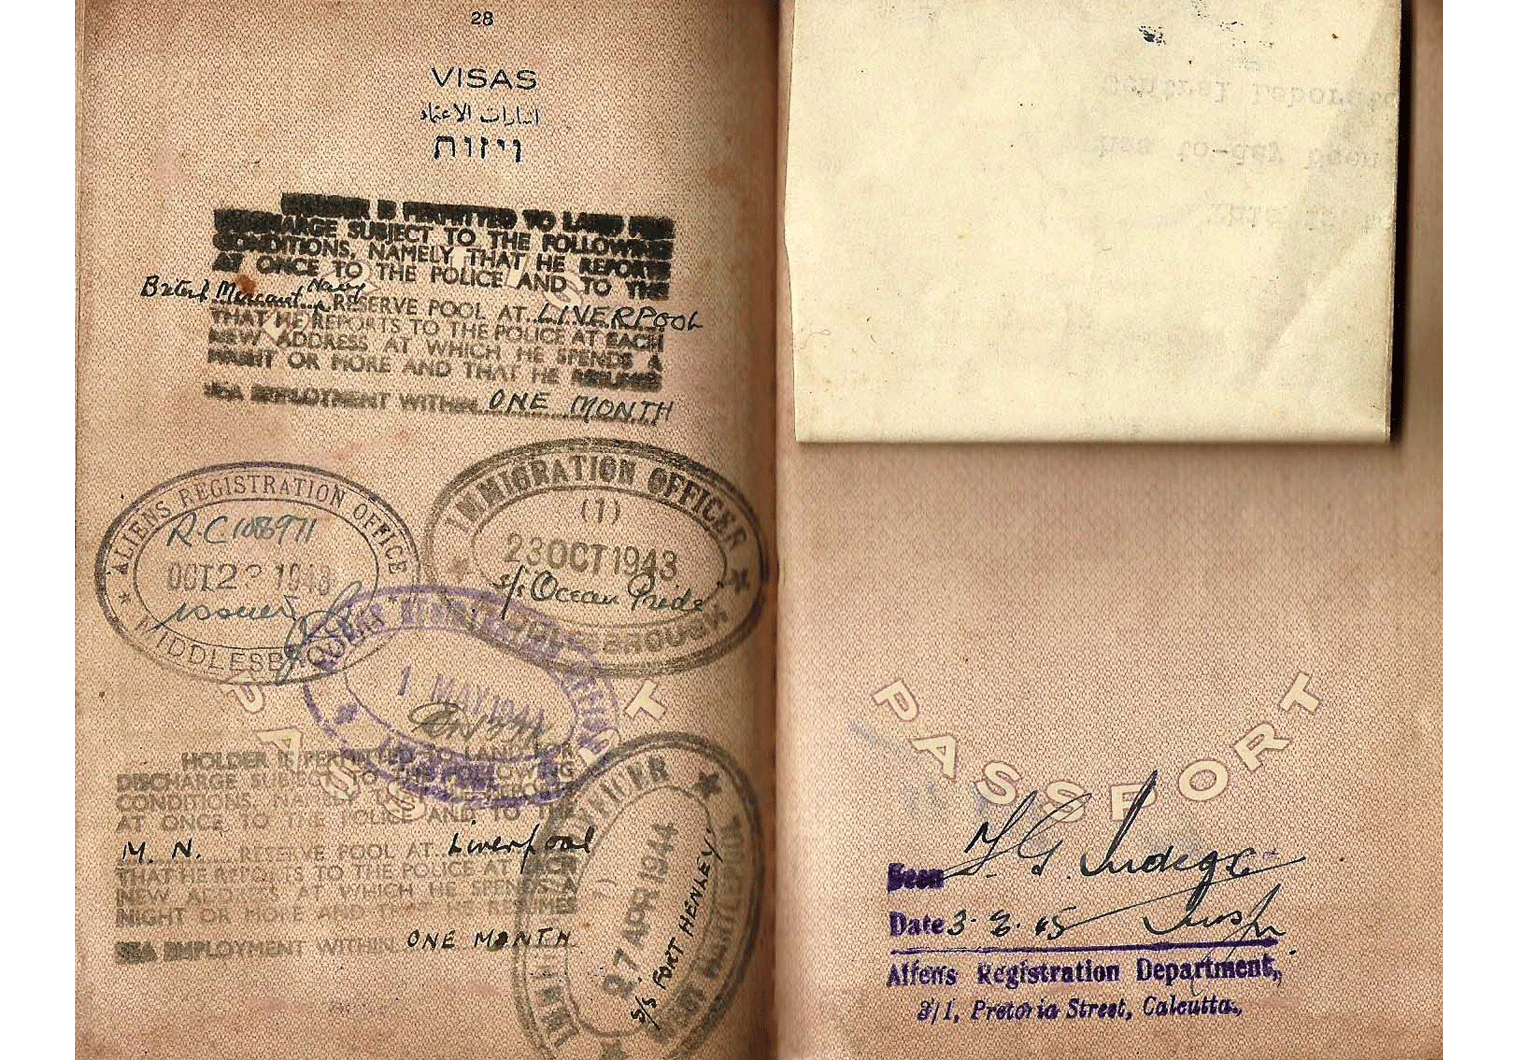 28
VISAS
ויזות
HOLDER IS PERMITTED TO LAND FOR
DISCHARGE SUBJECT TO THE FOLLOWING
CONDITIONS, NAMELY THAT HE REPORTS
AT ONCE TO THE POLICE AND TO THE
Navy
RESERVE POOL AT LIVERPOOL
THAT HE REPORTS TO THE POLICE AT EACH
NEW ADDRESS AT WHICH HE SPENDS A
NIGHT OR MORE AND THAT HE RESUMES
SEA EMPLOYMENT WITHIN ONE MONTH
ALIENS REGISTRATION OFFICE
OCT 1943
MIDDLESBROUGH
IMMIGRATION OFFICER
(1)
23 OCT 1943
s/s Ocean Pride
MIDDLESBROUGH
1 MAY 1944
PASSPORT
HOLDER IS PERMITTED TO LAND FOR
DISCHARGE SUBJECT TO THE FOLLOWING
CONDITIONS, NAMELY THAT HE REPORTS
AT ONCE TO THE POLICE AND TO THE
M. N. RESERVE POOL AT Liverpool
THAT HE REPORTS TO THE POLICE AT EACH
NEW ADDRESS AT WHICH HE SPENDS A
NIGHT OR MORE AND THAT HE RESUMES
SEA EMPLOYMENT WITHIN ONE MONTH
27 APR 1944
S/S FORT HENLEY
Central Laborato
has to-day been
This is to
PASSPORT
Seen
Date 3.8.45
Aliens Registration Department,
Pretoria Street, Calcutta.